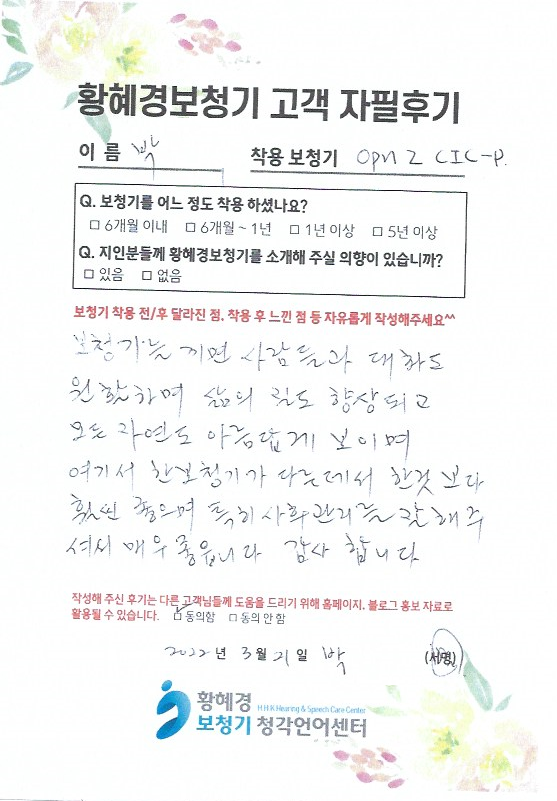 황혜경보청기 고객 자필후기
이 름 박 착용 보청기 opn 2 CIC-P.
Q. 보청기를 어느 정도 착용 하셨나요?
□ 6개월 이내 □ 6개월 ~ 1년 □ 1년 이상 □ 5년 이상
Q. 지인분들께 황혜경보청기를 소개해 주실 의향이 있습니까?
□ 있음 □ 없음
보청기 착용 전/후 달라진 점, 착용 후 느낀 점 등 자유롭게 작성해주세요^^
보청기를 끼면 사람들과 대화도
원활하며 삶의 질도 향상되고
모든 자연도 아름답게 보이며
여기서 한보청기가 다른데서 한것 보다
훨씬 좋으며 특히 사후관리를 잘해주
셔서 매우 좋읍니다 감사 합니다
작성해 주신 후기는 다른 고객님들께 도움을 드리기 위해 홈페이지, 블로그 홍보 자료로
활용될 수 있습니다. □ 동의함 □ 동의 안 함
2022 년 3 월 21 일 박 (서명)
황혜경
HHK Hearing & Speech Care Center
보청기 청각언어센터